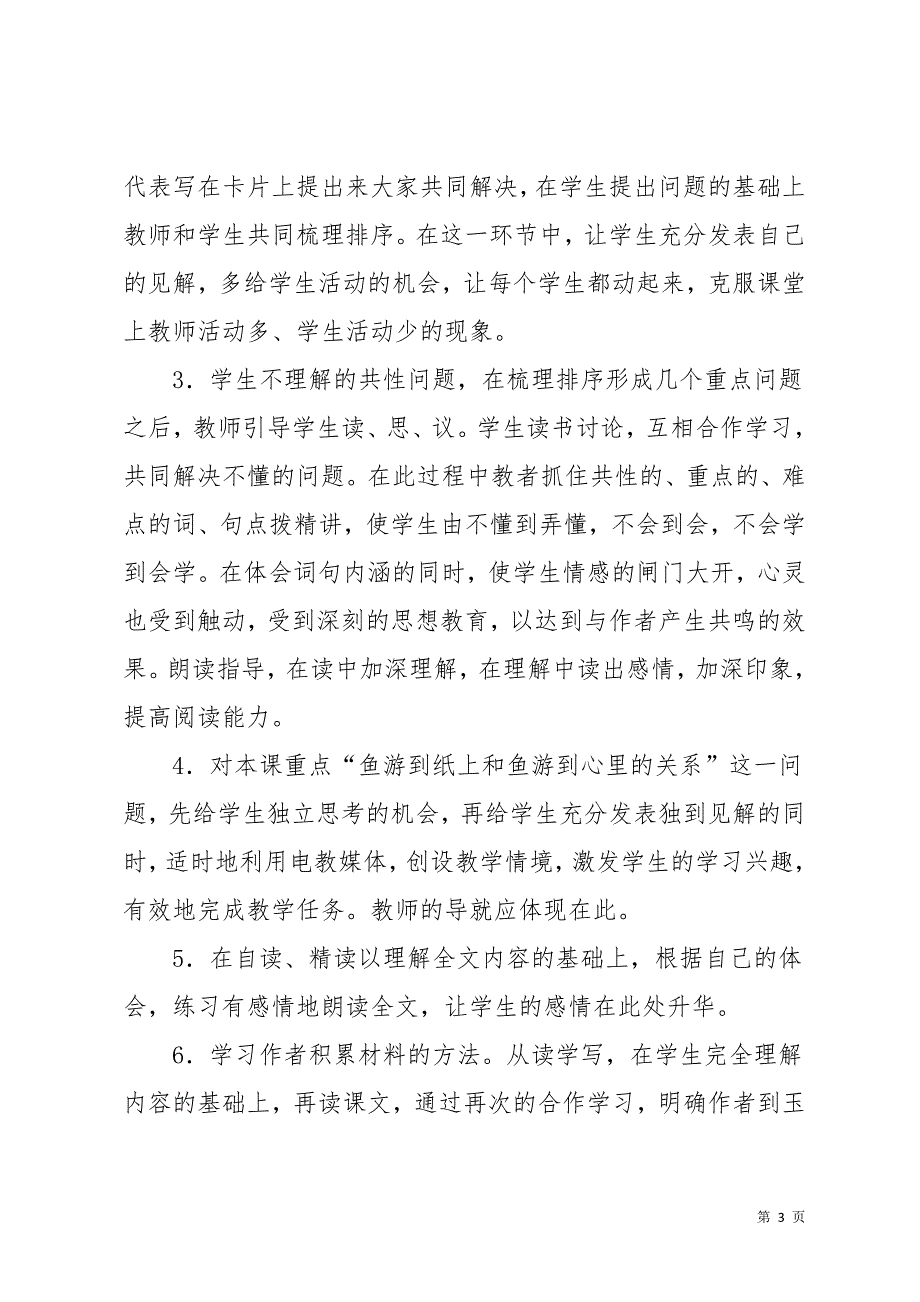 代表写在卡片上提出来大家共同解决，在学生提出问题的基础上
教师和学生共同梳理排序。在这一环节中，让学生充分发表自己
的见解，多给学生活动的机会，让每个学生都动起来，克服课堂
上教师活动多、学生活动少的现象。
3．学生不理解的共性问题，在梳理排序形成几个重点问题
之后，教师引导学生读、思、议。学生读书讨论，互相合作学习，
共同解决不懂的问题。在此过程中教者抓住共性的、重点的、难
点的词、句点拨精讲，使学生由不懂到弄懂，不会到会，不会学
到会学。在体会词句内涵的同时，使学生情感的闸门大开，心灵
也受到触动，受到深刻的思想教育，以达到与作者产生共鸣的效
果。朗读指导，在读中加深理解，在理解中读出感情，加深印象，
提高阅读能力。
4．对本课重点“鱼游到纸上和鱼游到心里的关系”这一问
题，先给学生独立思考的机会，再给学生充分发表独到见解的同
时，适时地利用电教媒体，创设教学情境，激发学生的学习兴趣，
有效地完成教学任务。教师的导就应体现在此。
5．在自读、精读以理解全文内容的基础上，根据自己的体
会，练习有感情地朗读全文，让学生的感情在此处升华。
6．学习作者积累材料的方法。从读学写，在学生完全理解
内容的基础上，再读课文，通过再次的合作学习，明确作者到玉
第 3 页